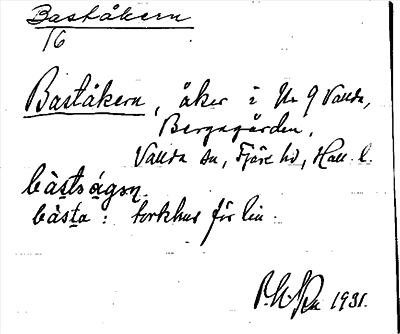 Baståkern
16
Baståkern, åker i Nr 9 Vallda,
Bergagården,
Vallda sn, Fjäre hd, Hall. l.
bàstságən.
bàsta: torkhus för lin.
1931.